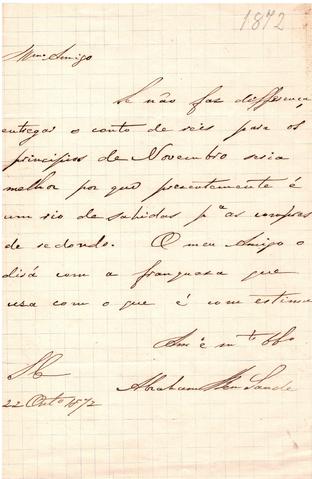 1872
Meu Amigo
Se não faz differença
entregar o conto de reis para os
principios de Novembro seria
melhor por que presentemente é
um rio de sahidas pª as compras
de redondo. O meu Amigo o
dirá com a franqueza que
usa com o que é com estima
Amº e mto
S C
Abraham Ben
22 Outo 1872